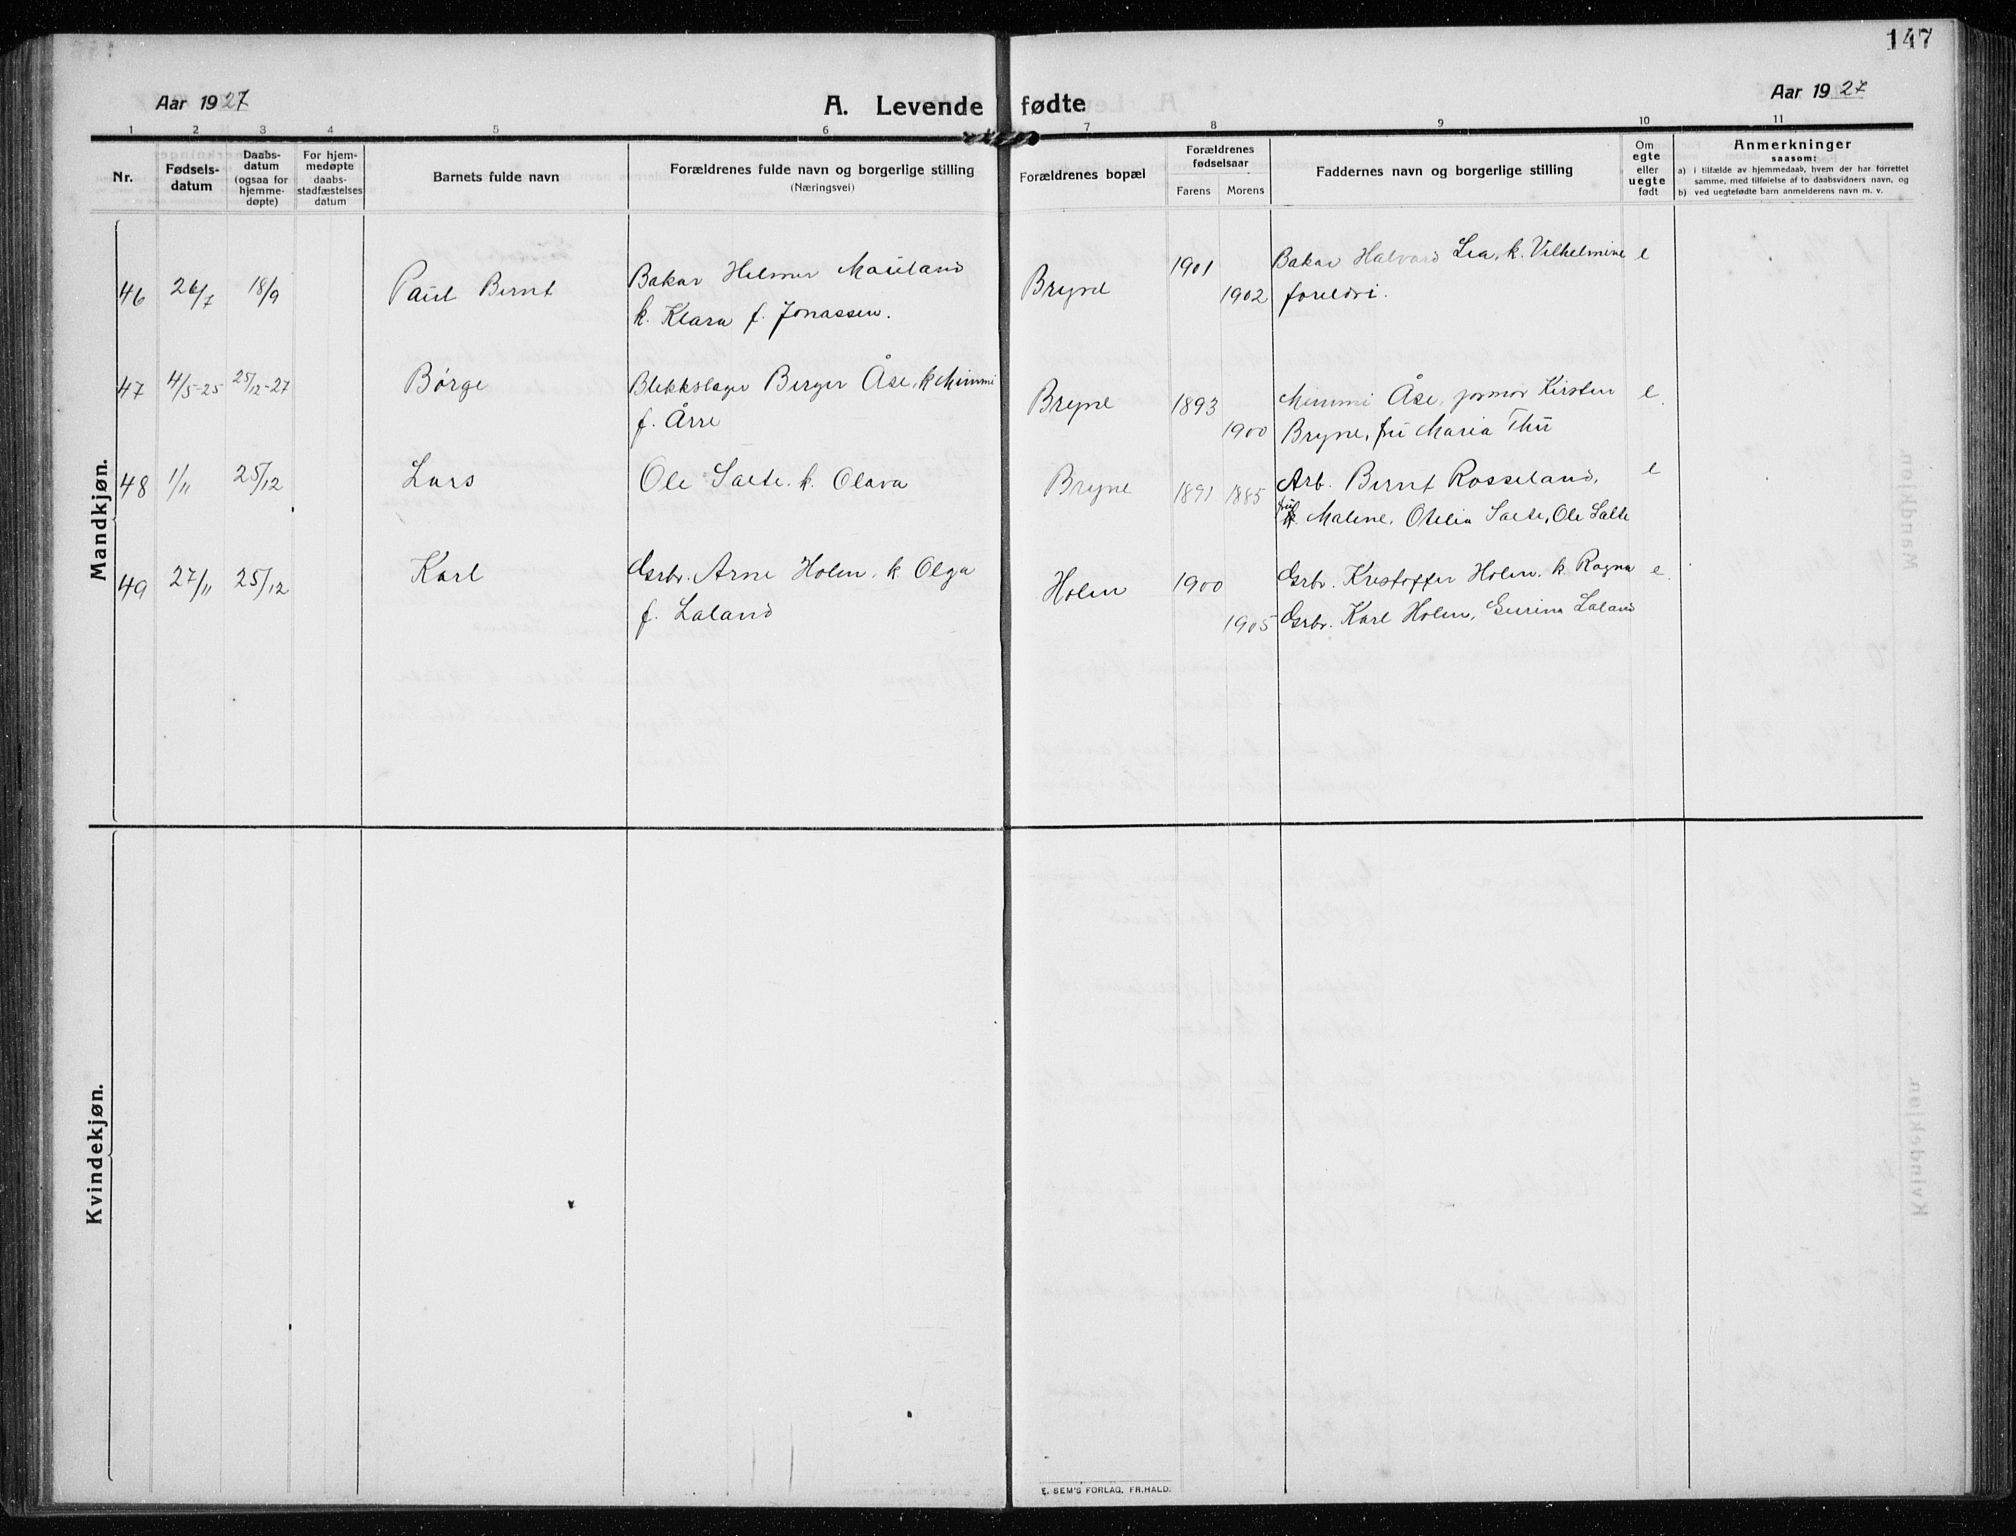 147
Aar 1927
A. Levende fødte
Aar 1927
1 2 3 4 5 6 7 8 9 10 11
Nr.
Fødsels-
datum
Daabs-
datum
(ogsaa for
hjemme-
døpte)
For hjem-
medøpte
daabs-
stadfæstelses
datum
Barnets fulde navn
Forældrenes fulde navn og borgerlige stilling
(Næringsvei)
Forældrenes bopæl
Forældrenes
fødselsaar
Farens Morens
Faddernes navn og borgerlige stilling
Om
egte
eller
uegte
født
Anmerkninger
saasom:
a) i tilfælde av hjemmedaab, hvem der har forrettet
samme, med tilføielse af to daabsvidners navn, og
b) ved uegtefødte barn anmelderens navn m. v.
Mandkjøn.
46 26/7 18/9 Paul Bernt Bakar Helmer Mauland Bryne 1901 Bakar Halvard Lea, k. Vilhelmine e
k. Klara f. Jonassen. 1902 foreldri.
47 4/5-25 25/12-27 Børge Blekkslager Berger Åse, k Mimmi Bryne 1893 Mimmi Åse, jormor Kirsten e.
f. Årre 1900 Bryne, fru Maria Thu
48 1/11 25/12 Lars Ole Salte. k. Olava Bryne 1891 1885 Arb. Bernt Rosseland, e
fru Malene, Otelia Salte, Ole Salte
49 27/11 25/12 Karl Gsrbr. Arne Holen. k. Olga Holen 1900 Gsrbr. Kristoffer Holen. k. Ragna e.
f. Laland 1905 Gsrbr. Karl Holen, Gurina Laland
Kvindekjøn.
E. SEM'S FORLAG, FR.HALD.